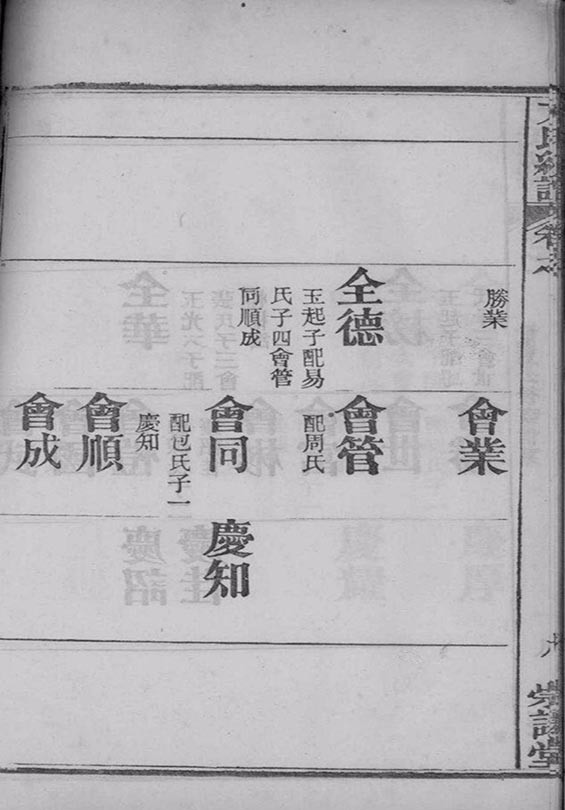 勝業
會業
全德
玉起子配易
氏子四會管
同順成
會管
配周氏
會同
配包氏子一
慶知
慶知
會順
會成